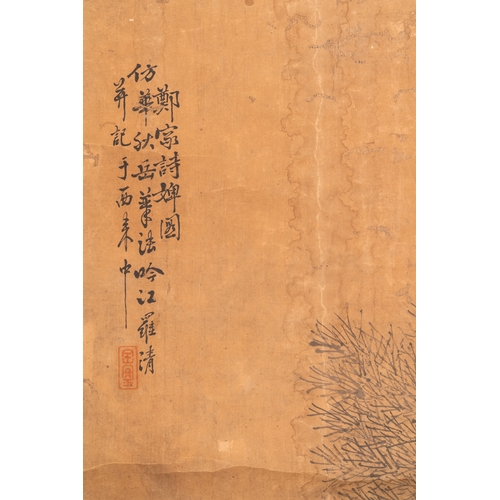 鄭家詩婢圖
仿華秋岳筆法吟江羅清
并記于西泉中